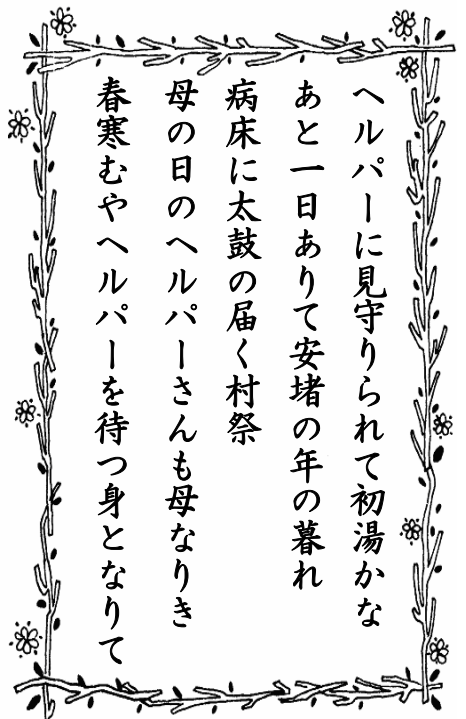 ヘルパーに見守りられて初湯かな
あと一日ありて安堵の年の暮れ
病床に太鼓の届く村祭
母の日のヘルパーさんも母なりき
春寒むやヘルパーを待つ身となりて